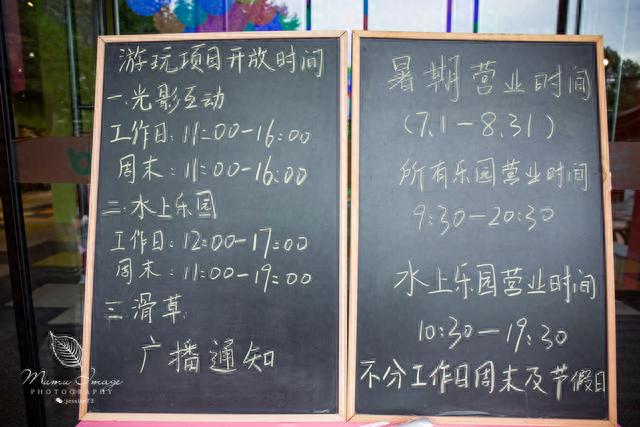 游玩项目开放时间
一.光影互动
工作日:11:00-16:00
周末:11:00-16:00
二.水上乐园
工作日:12:00-17:00
周末:11:00-19:00
三.滑草
广播通知
暑期营业时间
(7.1-8.31)
所有乐园营业时间
9:30-20:30
水上乐园营业时间
10:30-19:30
不分工作日周末及节假日
Mumu Image
PHOTOGRAPHY